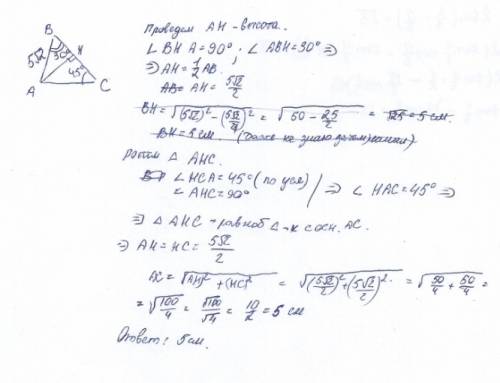 B
5√2
30°
H
45°
A
C
Проведем AH - высота.
∠BHA=90°, ∠ABH=30° ⇒
⇒ AH = 1/2 AB.
AB= AH = 5√2/2
BH = √((5√2)² - (5√2/2)²) = √(50 - 25/2) = √25 = 5 см.
BH = 5 см. (даже не знаю зачем нашли)
Рассм △ AHC.
∠HCA = 45° (по усл)
∠AHC = 90° | ⇒ ∠HAC = 45° ⇒
⇒ △AHC - равноб △-к с осн. AC.
⇒ AH = HC = 5√2/2
AC = √(AH)² + (HC)² = √((5√2/2)² + (5√2/2)²) = √(50/4 + 50/4) =
= √(100/4) = √100/√4 = 10/2 = 5 см
Ответ: 5 см.